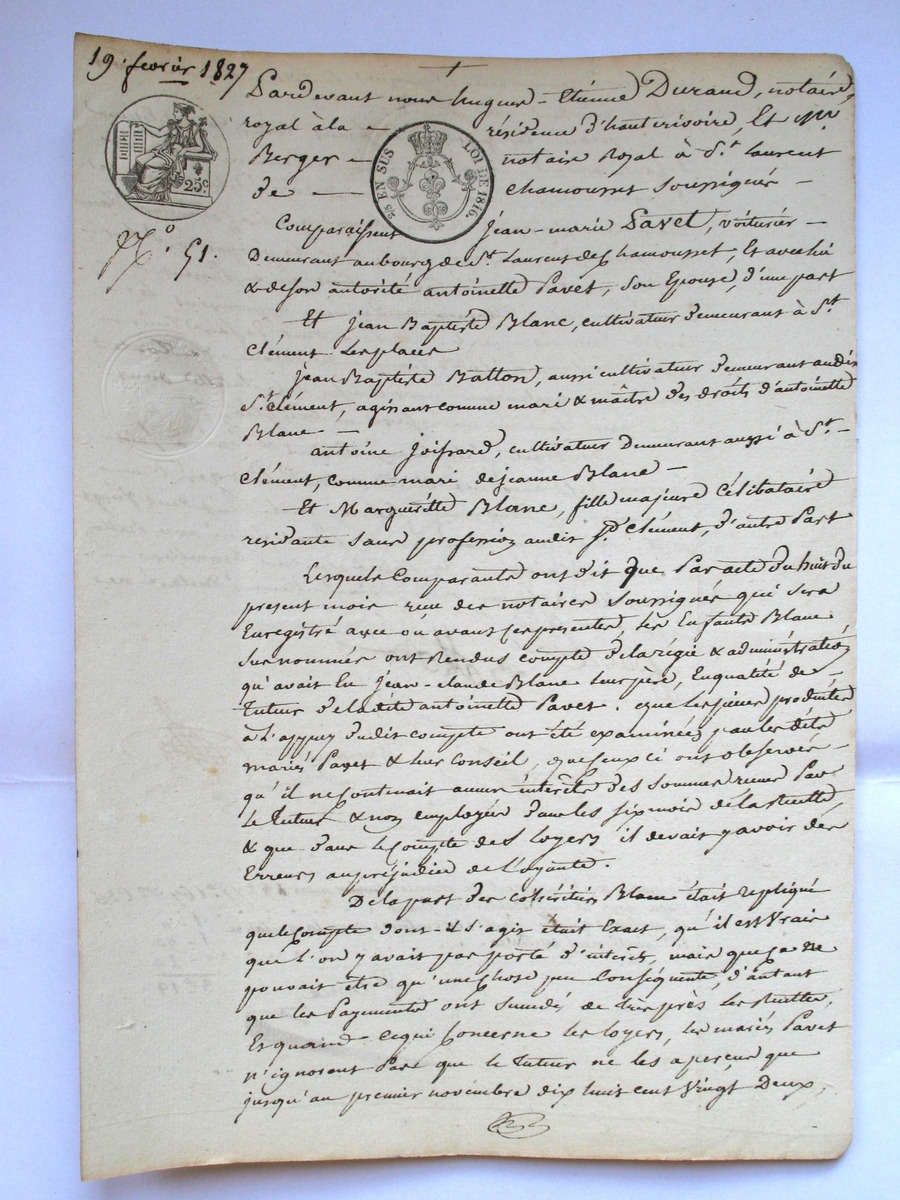 19. fevrier 1827
Pardevant nous hugues - Etienne Durand, notaire,
royal à la - résidence d'haut rivoire, Et Mre
Berger - notaire Royal à St. Laurent
de - Chamousset soussignés -
25 EN SUS LOI DE 1816.
25 c.
No. 51.
Comparaissent jean-marie Pavet, voiturier -
Demeurant au bourg de St. Laurent de Chamousset, Et avec lui
& de son autorité antoinette Pavet, son Epouse, d'une part
Et jean Baptiste Blanc, cultivateur demeurant à St.
Clément les places
jean Baptiste Batton, aussi cultivateur demeurant audit
St. Clément, agissant comme mari & maître des droits d'antoinette
Blanc -
antoine joifrard, cultivateur Demeurant aussi à St. -
Clément, comme mari de jeanne Blanc -
Et Margueritte Blanc, fille majeure Célibataire
residante sans profession audit St. Clément, d'autre Part
Lesquels Comparants ont dit que Par acte du huit du
present mois reçu des notaires soussignés qui sera
Enregistré avec ou avant ces presentes, les Enfants Blanc
sus nommés ont Rendus compte de la régie & administration
qu'avait Eu jean-claude Blanc leur père, En qualité de -
tuteur de ladite antoinette Pavet. que les pièces produites
à l'appuy dudit compte ont été examinées par les dits
mariés Pavet & leur Conseil, que ceux ci ont observés -
qu'il ne contenait aucun intérêts des sommes reçues Par
le tuteur & non employées dans les six mois de la recette,
& que dans le compte des loyers il devait y avoir des
Erreurs au préjudice de l'oyante.
De la part des cohéritiers Blanc était repliqué
que le compte dont-il s'agit était Exact, qu'il est vrai
que l'on y avait pas porté d'interets, mais que ça ne
pouvait être qu'une chose peu Conséquente, d'autant
que les Payements ont succédés de très près les recettes,
Et quand - ce qui Concerne les loyers, les mariés Pavet
n'ignorent Pas que le tuteur ne les a perçus que
jusqu'au premier novembre dix huit cent Vingt Deux,